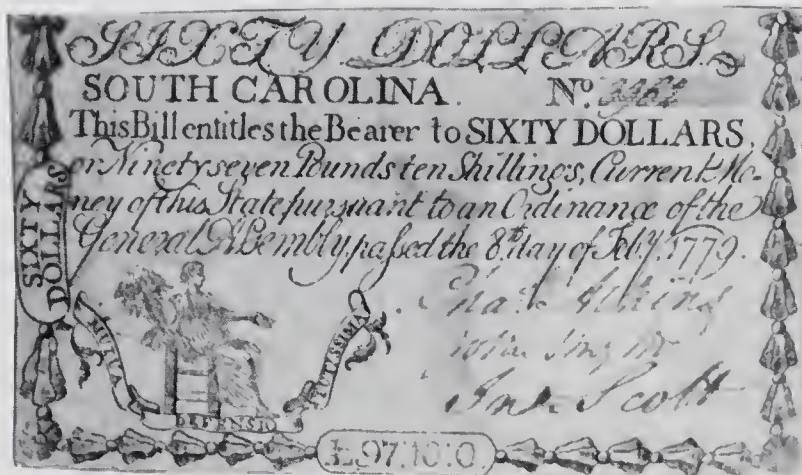 SIXTY DOLLARS.
SOUTH CAROLINA. No.
This Bill entitles the Bearer to SIXTY DOLLARS,
or Ninety seven Pounds ten Shillings, Current Mo-
ney of this State pursuant to an Ordinance of the
General Assembly, passed the 8th day of Feby. 1779.
SIXTY
DOLLARS
MUTUA DEFENSIO TUTISSIMA
Scott
£97:10:0